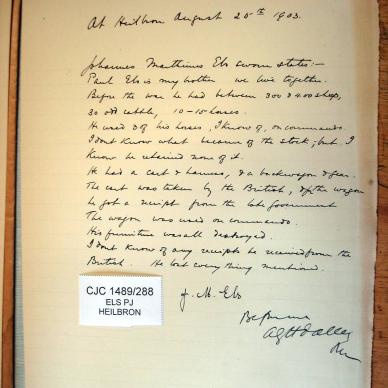 At Heilbron August 25th 1903.
Johannes Marthinus Els sworn states:-
Paul Els is my brother we live together.
Before the war he had between 300 & 400 sheep,
30 odd cattle, 10-15 horses.
He used of his horses, I know of, on commando.
I dont know what became of the stock; but I
know he retained none of it.
He had a cart & harness, & a buckwagon & gear.
The cart was taken by the British, & for the wagon
he got a receipt from the late Government
The wagon was used on commando.
His furniture was all destroyed.
I dont know of any receipts he received from the
British. He lost everything mentioned.
J. M. Els
Before me
CJC 1489/288
ELS PJ
HEILBRON